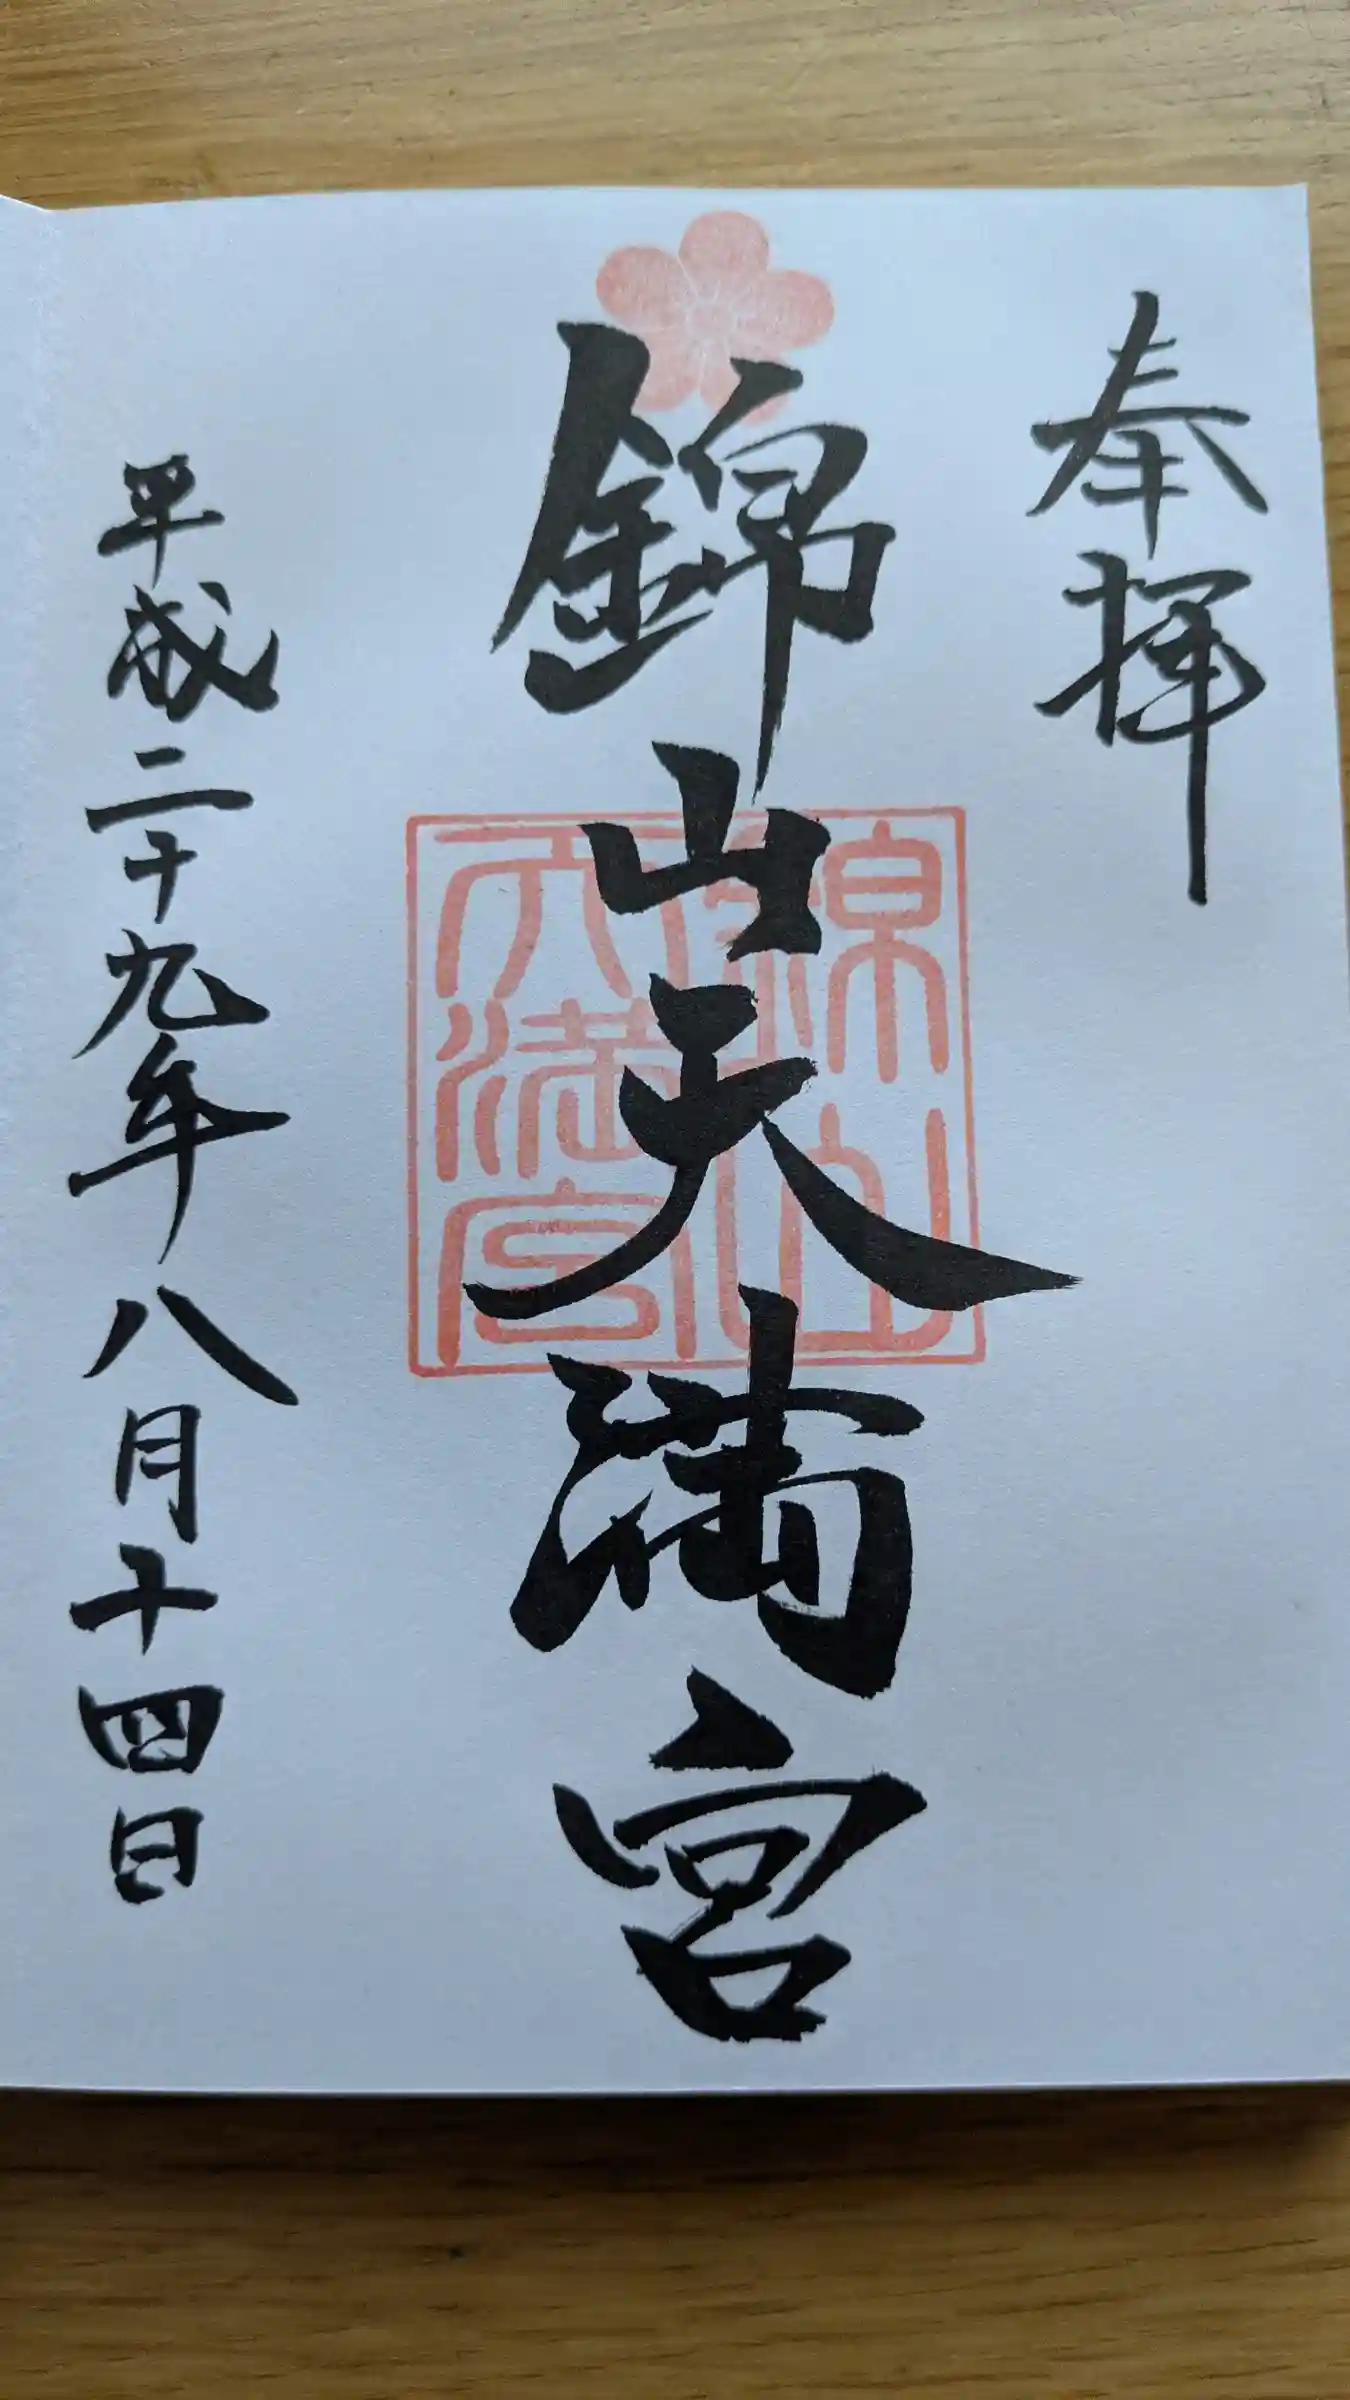 奉拝
錦山天満宮
錦山
天満宮
平成二十九年八月十四日